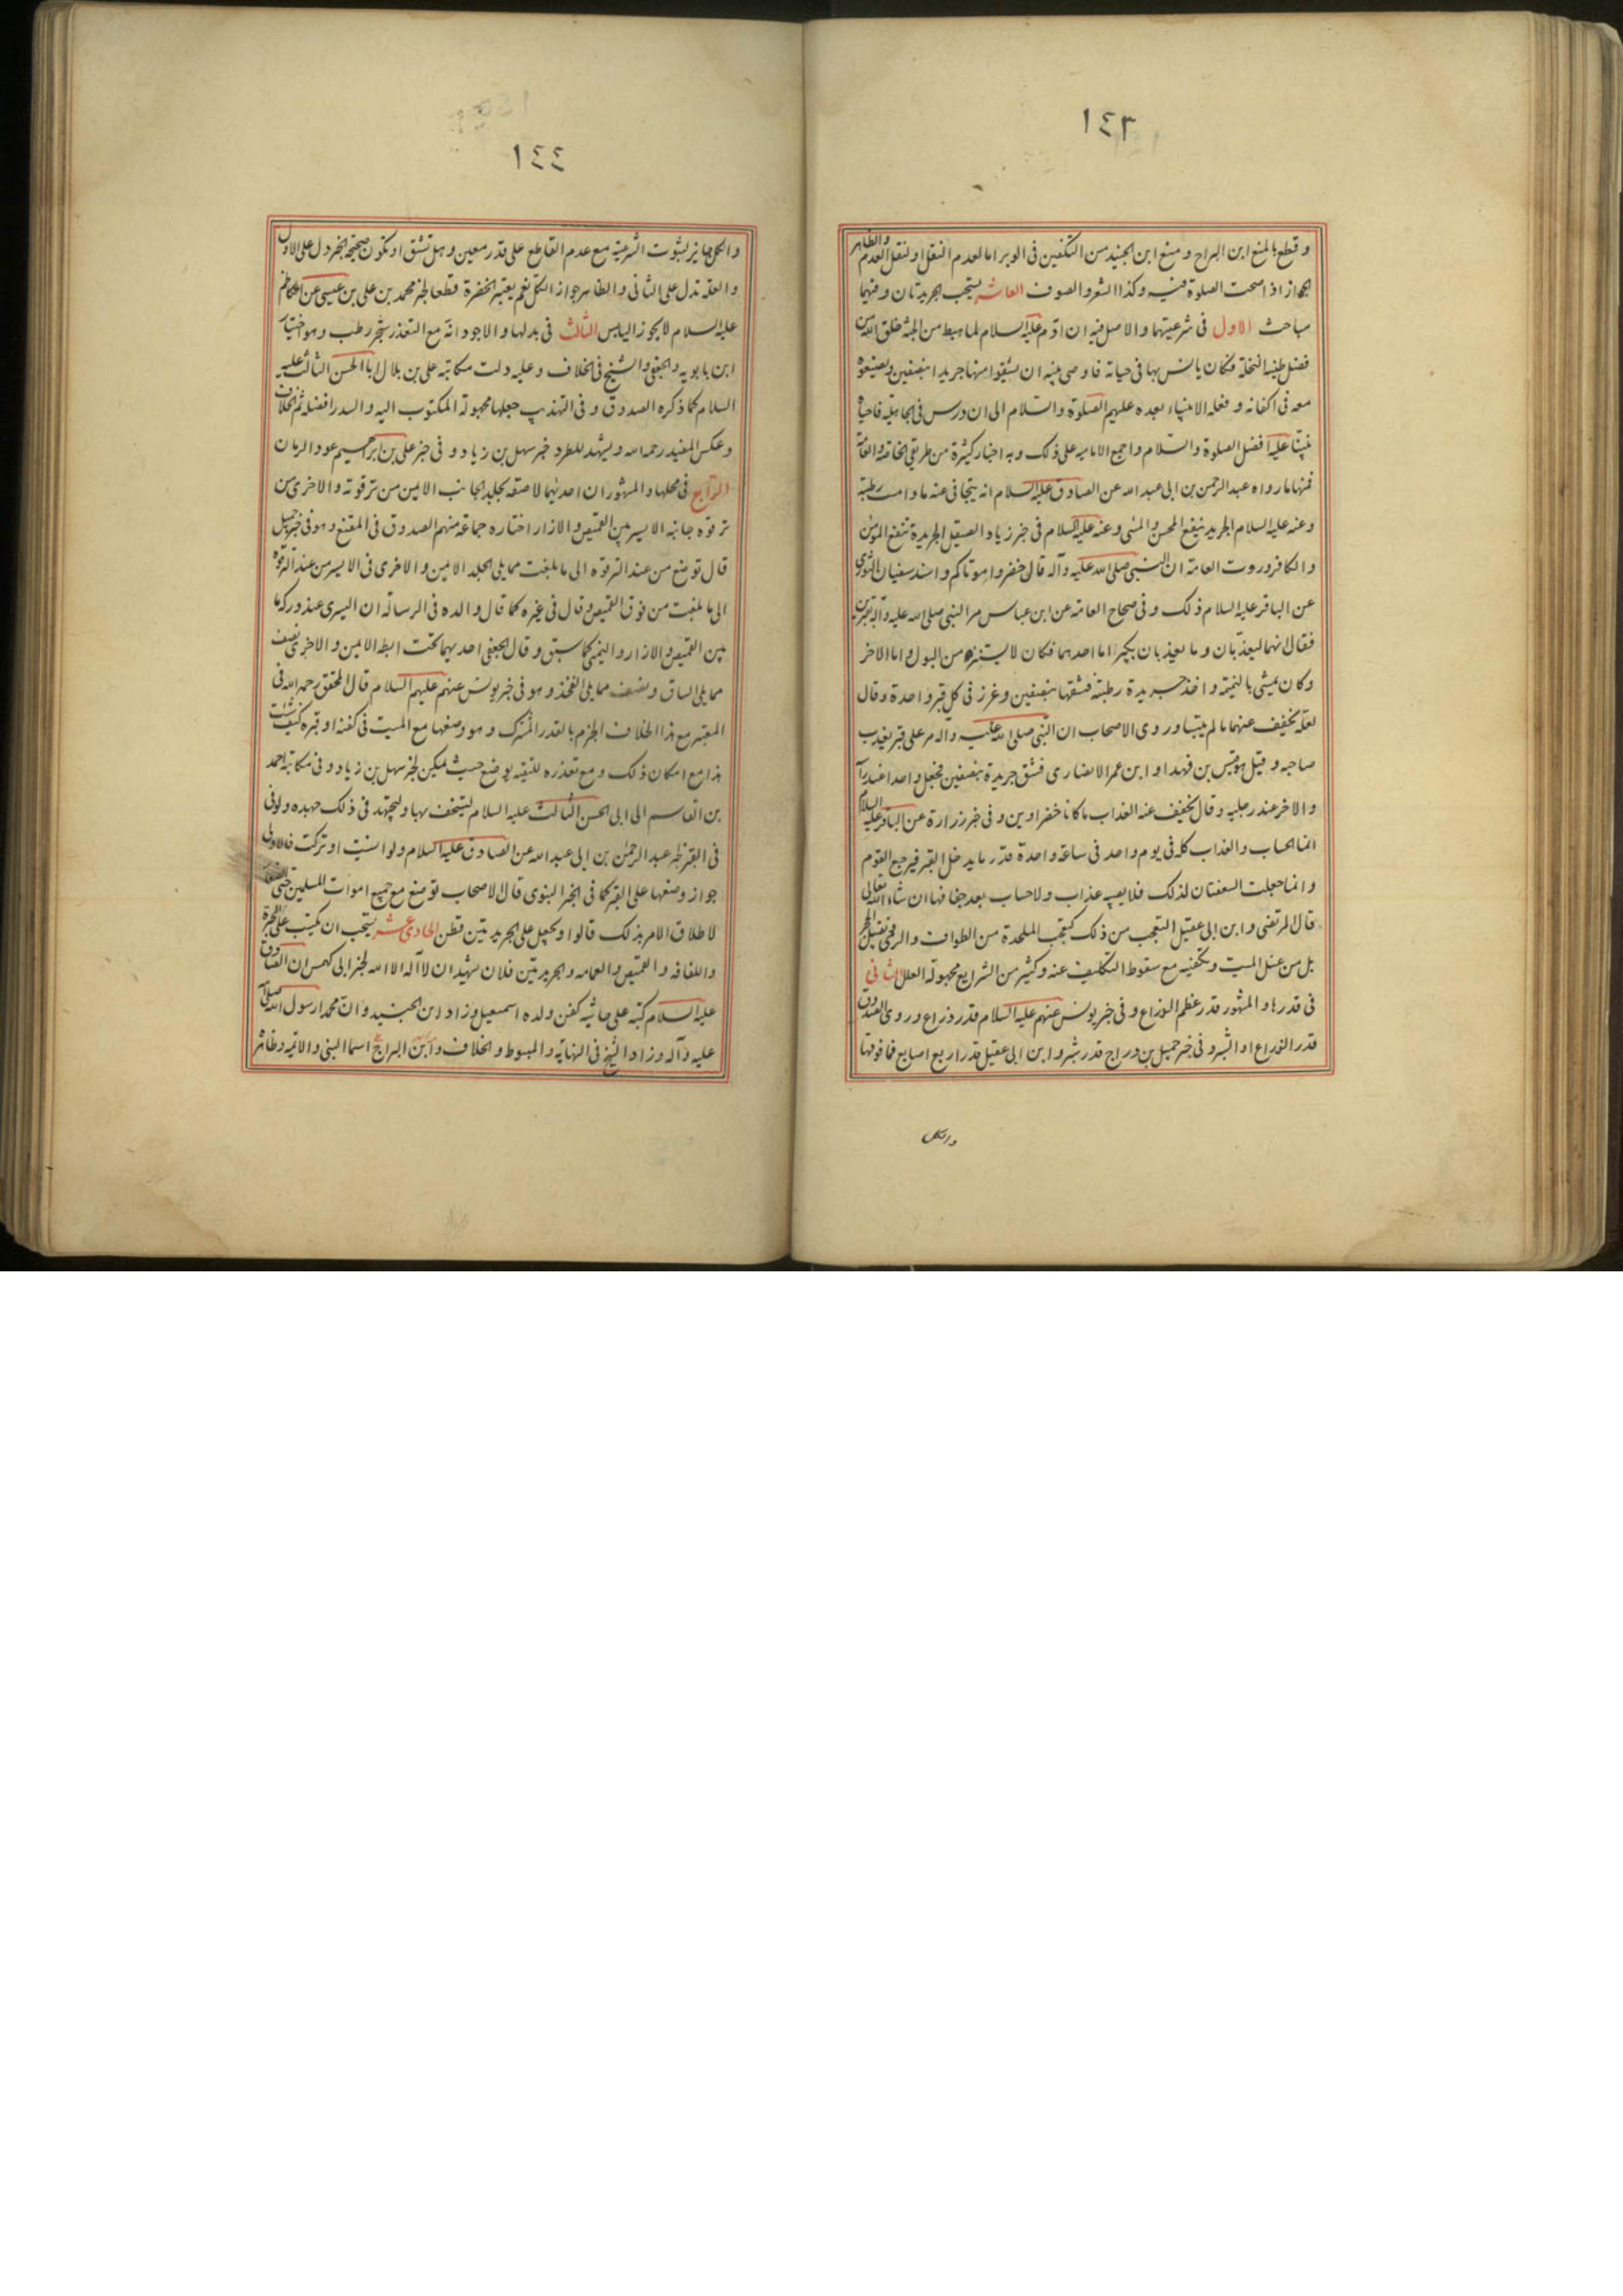 ١٤٣
وقطع بالمنع ابن البراج ومنع ابن الجنيد من التكفين فى الوبر اما لعدم النقل او لنقل العدم والظاهر
الجواز اذا صحت الصلوة فيه وكذا الشعر والصوف العاشر يستحب الجريدتان وفيهما
مباحث الاول فى شرعيتهما والاصل فيه ان آدم عليه السلام لما هبط من الجنة خلق الله من
فضل طينه النخلة فكان يانس بها فى حياته فاوصى بنيه ان يشقوا منها جريدا بنصفين ويضعوه
معه فى اكفانه وفعله الانبياء بعده عليهم الصلوة والسلام الى ان درس فى الجاهلية فاحياه
نبينا عليه افضل الصلوة والسلام واجمع الامامية على ذلك وبه اخبار كثيرة من طريقى الخاصة والعامة
فمنها ما رواه عبد الرحمن بن ابى عبد الله عن الصادق عليه السلام انه يتجافى عنه ما دامت رطبة
وعنه عليه السلام الجريد ينفع المحسن والمسئ وعنه عليه السلام فى خبر زياد الصيقل الجريدة تنفع المؤمن
والكافر وروت العامة ان النبى صلى الله عليه وآله قال خضروا موتاكم واسند سفيان الثورى
عن الباقر عليه السلام ذلك وفى صحاح العامة عن ابن عباس مر النبى صلى الله عليه وآله بقبرين
فقال انهما ليعذبان وما يعذبان بكبير اما احدهما فكان لا يستنزه من البول واما الاخر
وكان يمشى بالنميمة واخذ جريدة رطبة فشقها بنصفين وغرز فى كل قبر واحدة وقال
لعله يخفف عنهما ما لم ييبسا وروى الاصحاب ان النبى صلى الله عليه وآله مر على قبر يعذب
صاحبه وقيل هو قيس بن فهد او ابن عمر الانصارى فشق جريدة بنصفين فجعل واحدا عند راسه
والاخر عند رجليه وقال يخفف عنه العذاب ما كانا خضراوين وفى خبر زرارة عن الباقر عليه السلام
انما الحساب والعذاب كله فى يوم واحد فى ساعة واحدة قدر ما يدخل القبر فيرجع القوم
وانما جعلت السعفتان لذلك فلا يصيبه عذاب ولا حساب بعد جفافها ان شاء الله تعالى
قال المرتضى وابن ابى عقيل التعجب من ذلك كتعجب الملحدة من الطواف والرمى وتقبيل الحجر
بل من غسل الميت وتكفينه مع سقوط التكليف عنه وكثير من الشرايع مجهولة العلل الثانى
فى قدرها والمشهور قدر عظم الذراع وفى خبر يونس عنهم عليه السلام قدر ذراع وروى الصدوق
قدر الذراع او الشبر وفى خبر جميل بن دراج قدر شبر وابن ابى عقيل قدر اربع اصابع فما فوقها
والكل
١٤٤
والكل جايز لثبوت الشرعية مع عدم القاطع على قدر معين وهل تشق او تكون صحيحة الخبر دل على الاول
والعلة تدل على الثانى والظاهر جواز الكل نعم يعتبر الخضرة قطعا لخبر محمد بن على بن عيسى عن الكاظم
عليه السلام لا يجوز اليابس الثالث فى بدلها والاجود انه مع التعذر شجر رطب وهو اختيار
ابن بابويه والجعفى والشيخ فى الخلاف وعليه دلت مكاتبة على بن بلال ابا الحسن الثالث عليه
السلام كما ذكره الصدوق وفى التهذيب جعلها مجهولة المكتوب اليه والسدر افضل ثم الخلاف
وعكس المفيد رحمه الله ويشهد للطرد خبر سهل بن زياد وفى خبر على بن ابراهيم عود الرمان
الرابع فى محلها والمشهور ان احديهما لاصقة بجلد الجانب الايمن من ترقوته والاخرى من
ترقوه جانبه الايسر بين القميص والازار اختاره جماعة منهم الصدوق فى المقنع وهو فى خبر جميل
قال توضع من عند الترقوه الى ما بلغت مما يلى الجلد الايمن والاخرى فى الايسر من عند الترقوة
الى ما بلغت من فوق القميص وقال فى غيره كما قال والده فى الرسالة ان اليسرى عند وركه ما
بين القميص والازار واليمنى كما سبق وقال الجعفى احديهما تحت ابطه الايمن والاخرى نصف
مما يلى الساق ونصف مما يلى الفخذ وهو فى خبر يونس عنهم عليهم السلام قال المحقق رحمه الله فى
المعتبر مع هذا الخلاف الجزم بالقدر المشترك وهو وضعها مع الميت فى كفنه او قبره كيف شئت
هذا مع امكان ذلك ومع تعذره للتقية يوضع حيث يمكن لخبر سهل بن زياد وفى مكاتبة احمد
بن القاسم الى ابى الحسن الثالث عليه السلام ليستخف بها وليجتهد فى ذلك جهده ولو فى
فى القبر لخبر عبد الرحمن بن ابى عبد الله عن الصادق عليه السلام ولو انسيت او تركت فالاولى
جواز وضعها على القبر كما فى الخبر النبوى قال الاصحاب توضع مع جميع اموات المسلمين حتى الصغار
لاطلاق الامر بذلك قالوا ويجعل على الجريدتين قطن الحادى عشر يستحب ان يكتب على الحبرة
واللفافة والقميص والعمامه والجريدتين فلان يشهد ان لا اله الا الله لخبر ابى كهمس ان الصادق
عليه السلام كتبه على حاشيه كفن ولده اسمعيل وزاد ابن الجنيد وان محمدا رسول الله صلى الله
عليه وآله وزاد الشيخ فى النهاية والمبسوط والخلاف وابن البراج اسما النبى والائمه وظاهر